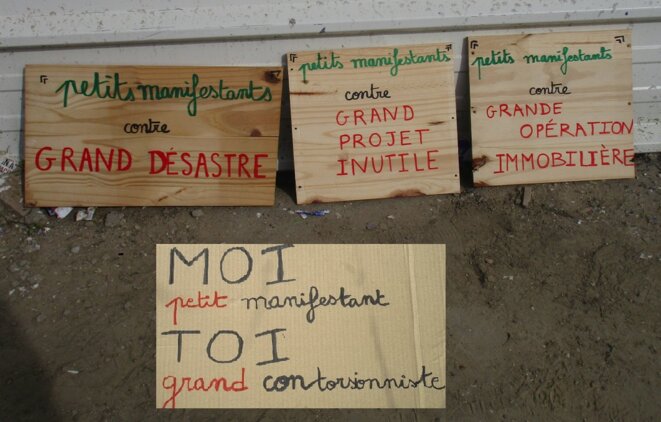 petits manifestants
contre
GRAND DÉSASTRE
petits manifestants
contre
GRAND
PROJET
INUTILE
petits manifestants
contre
GRANDE
OPÉRATION
IMMOBILIÈRE
MOI
petit manifestant
TOI
grand contorsionniste